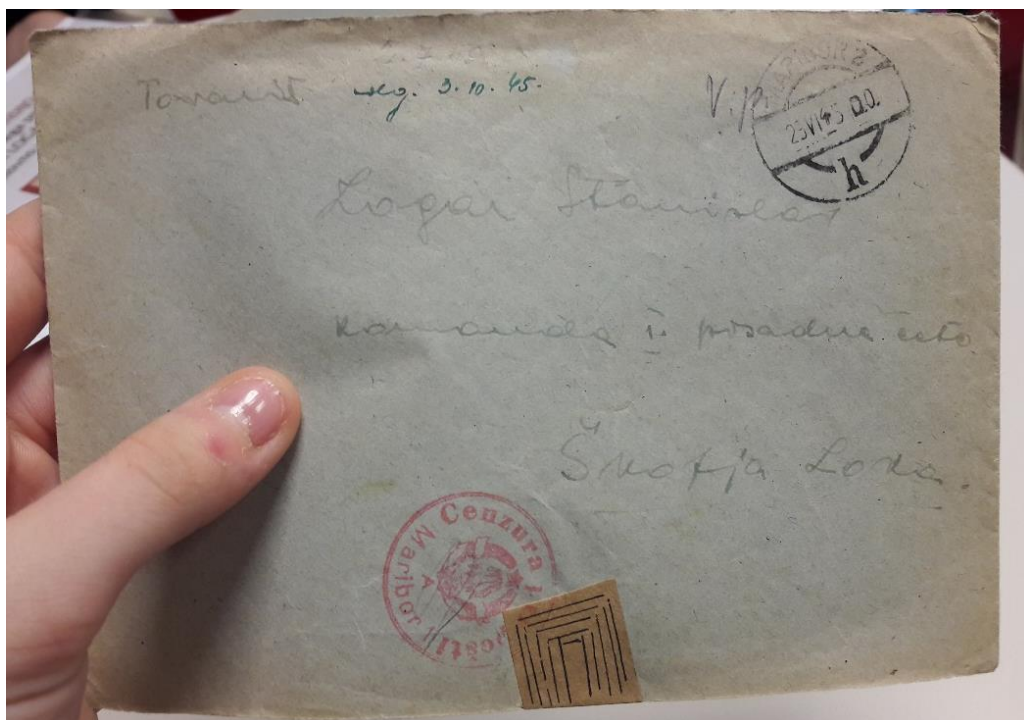 Tovariš odg. 3.10.45. V.p.
MARIBOR 2
25 VI 45 00.
h
Logar Stanislav
komanda I. posadna četa
Škofja Loka.
Cenzura
pošti
Maribor
A